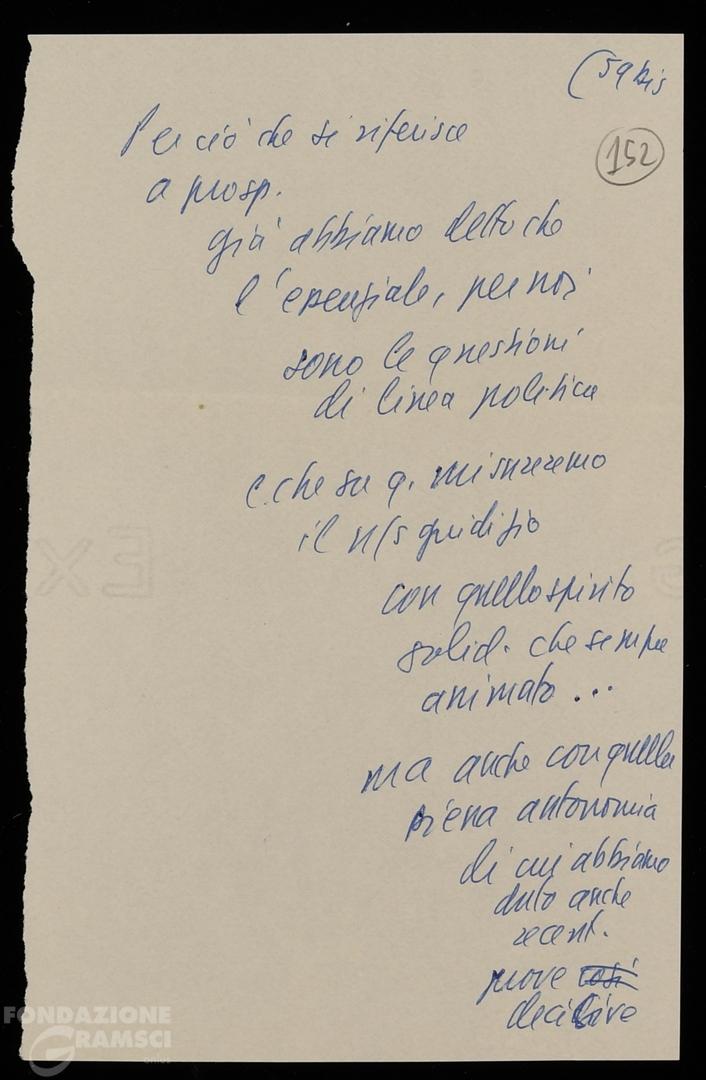 (59 bis
152
Per ciò che si riferisce
a prosp.
già abbiamo detto che
l'essenziale, per noi
sono le questioni
di linea politica
e che su q. misureremo
il n/s giudizio
con quello spirito
solid. che sempre
animato ...
ma anche con quella
piena autonomia
di cui abbiamo
dato anche
recent.
prove così
decisive
FONDAZIONE
GRAMSCI
onlus